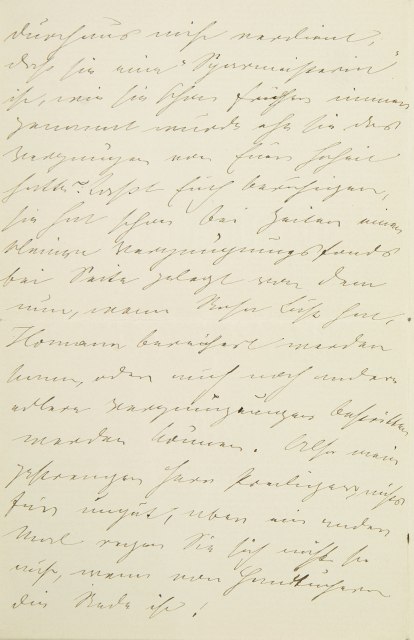 durchaus nicht verdient,
daß sie eine "Sparmeisterin"
ist, wie sie schon früher immer
genannt wurde ehe sie das
Vergnügen von Eurer Hoheit
hatte. Laßt Euch beruhigen,
sie hat schon bei Zeiten einen
kleinen Vergnügungsfonds
bei Seite gelegt von dem
nun, wenn Lust hat,
Homann bereichert werden
kann, oder auch noch andere
edlere Vergnügungen bestritten
werden können. Also mein
gestrenger Herr Prediger, nichts
für ungut, aber ein ander
Mal regen Sie sich nicht so
auf, wenn von
die Rede ist!